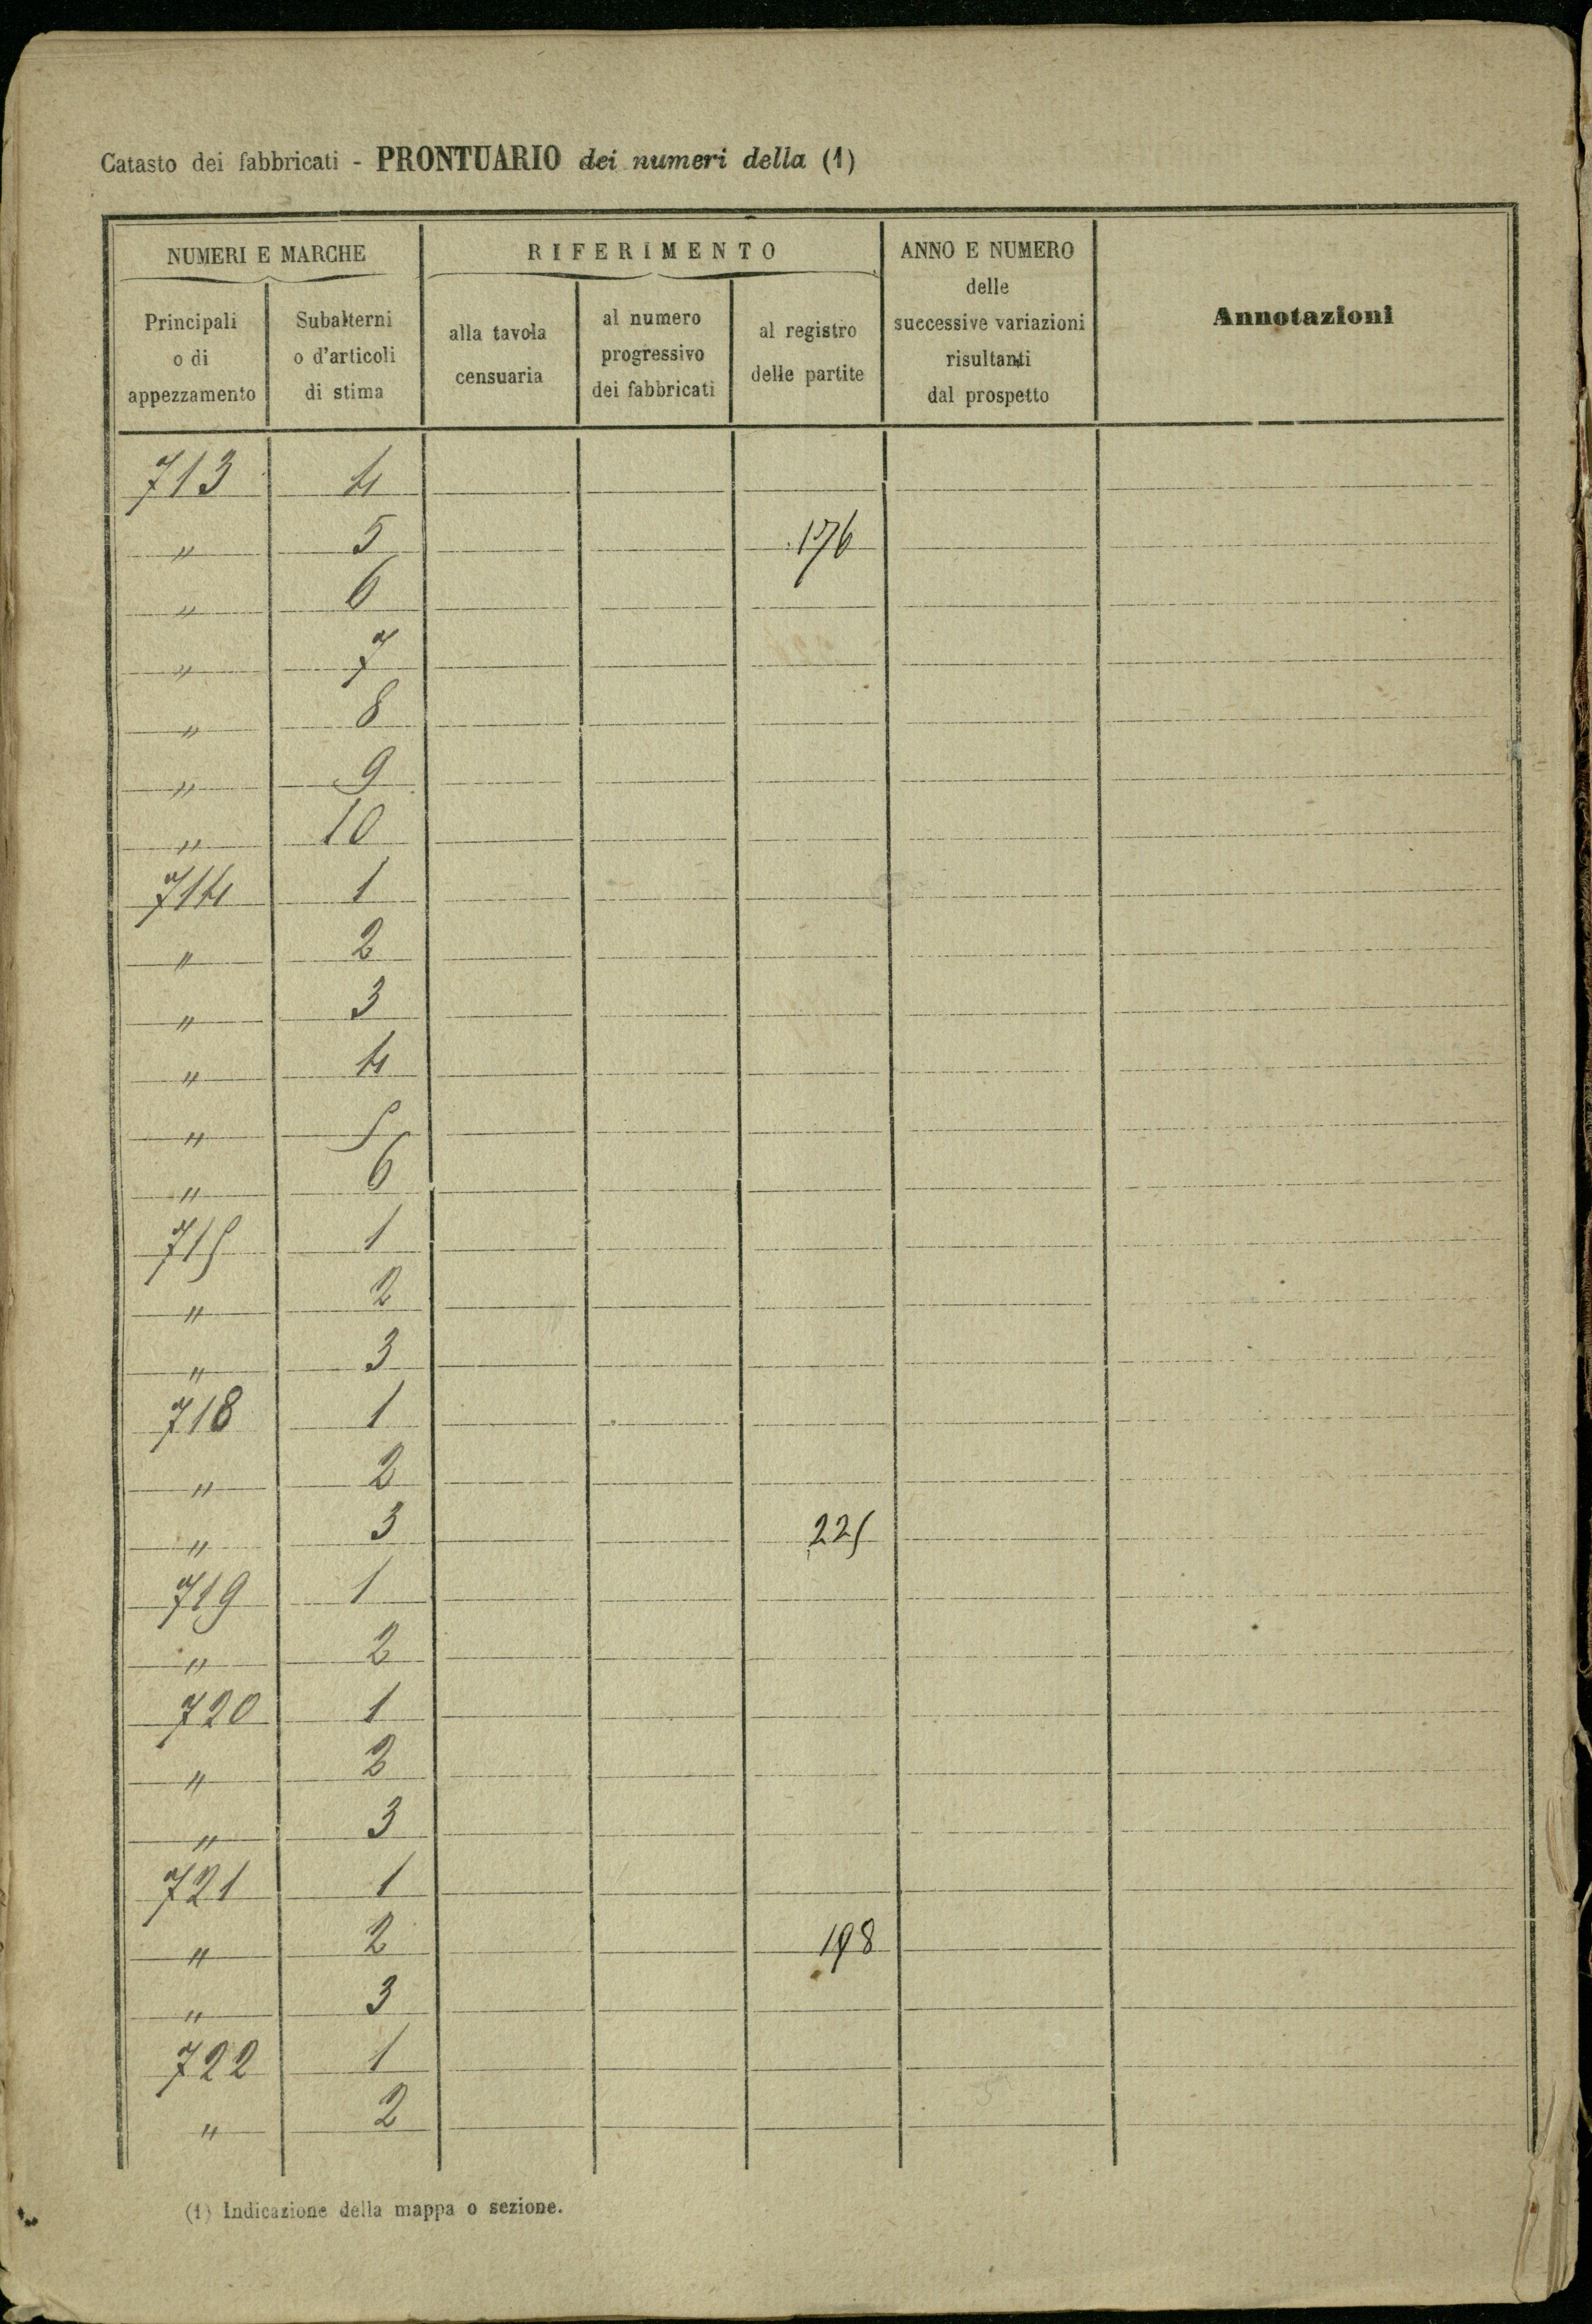 Catasto dei fabbricati - PRONTUARIO dei numeri della (1)
NUMERI E MARCHE
Principali
o di
appezzamento
Subalterni
o d'articoli
di stima
RIFERIMENTO
alla tavola
censuaria
al numero
progressivo
dei fabbricati
al registro
delle partite
ANNO E NUMERO
delle
successive variazioni
risultanti
dal prospetto
Annotazioni
713 4
" 5 176
" 6
" 7
" 8
" 9
" 10
714 1
" 2
" 3
" 4
" 5
" 6
715 1
" 2
" 3
718 1
" 2
" 3 225
719 1
" 2
720 1
" 2
" 3
721 1
" 2 198
" 3
722 1
" 2
(1) Indicazione della mappa o sezione.